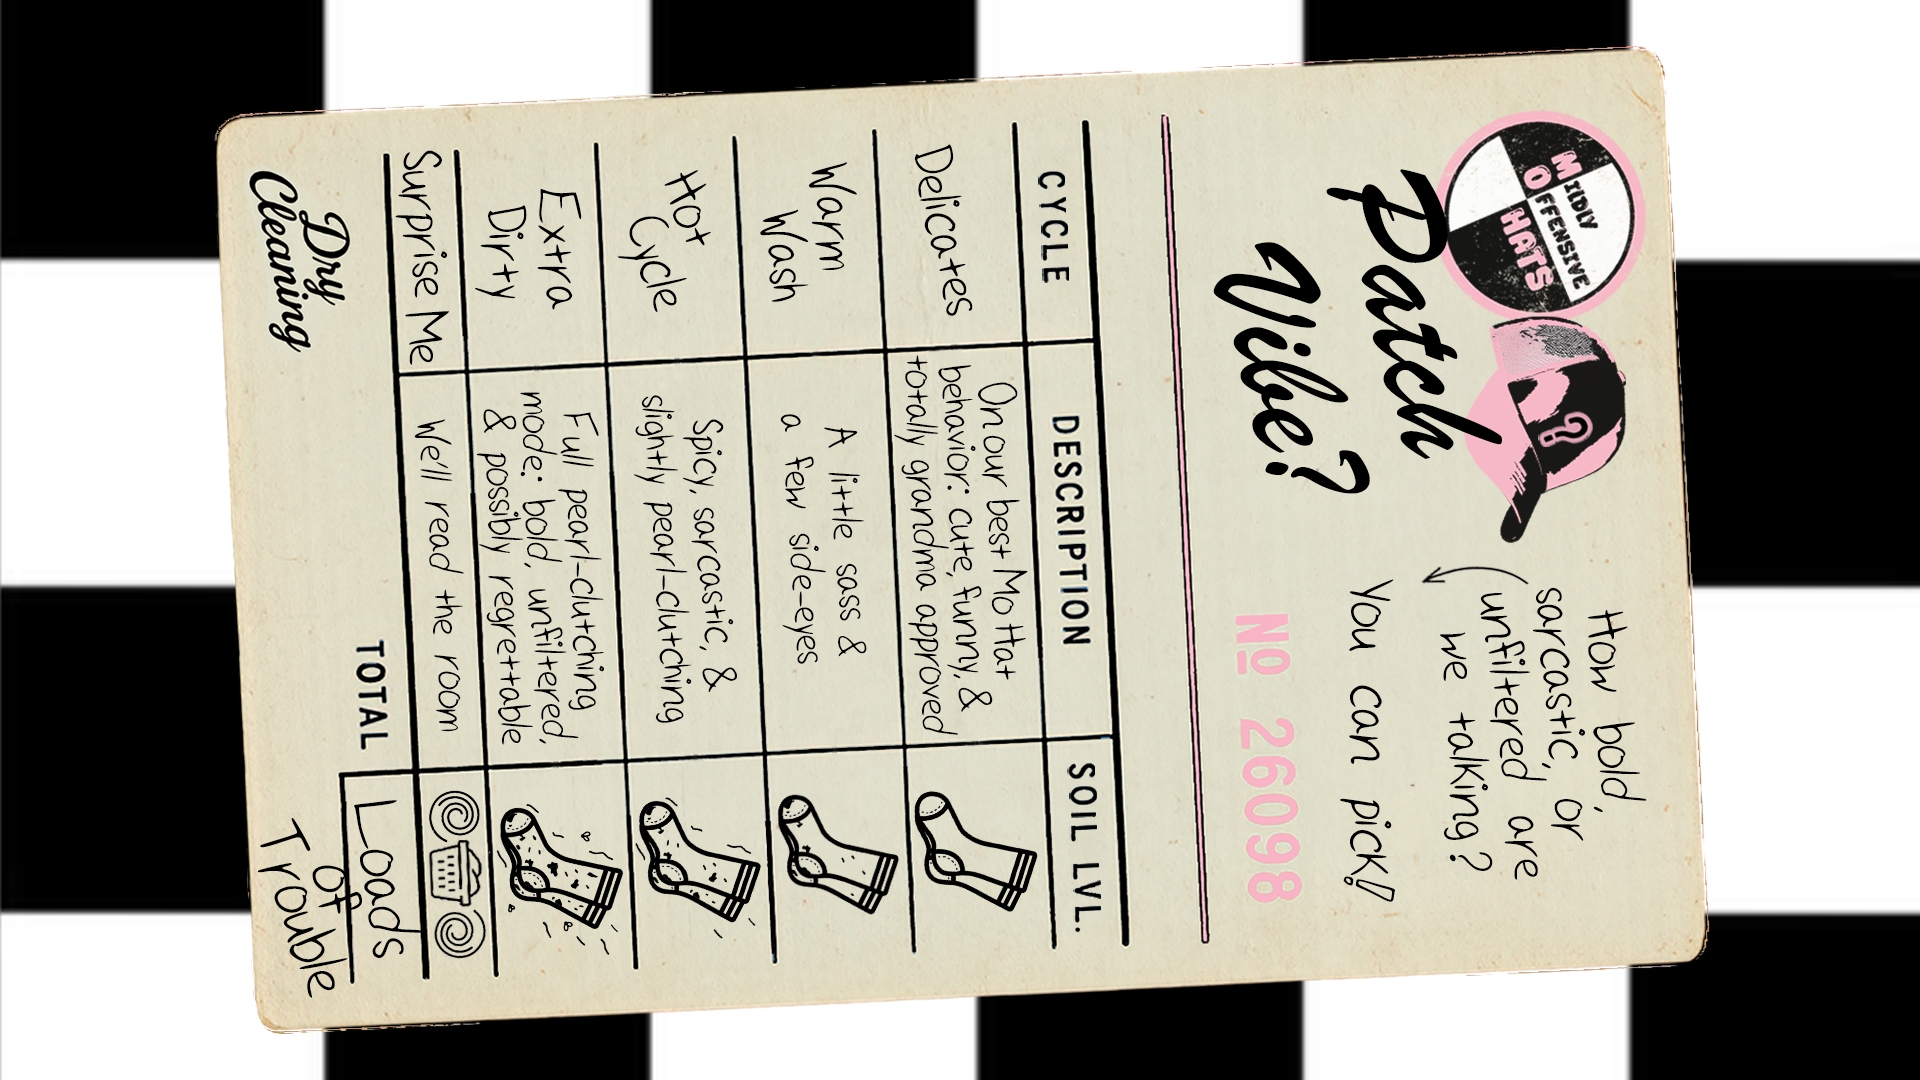 MILDLY
OFFENSIVE
HATS
?
Patch
Vibe?
How bold,
sarcastic, or
unfiltered are
we talking?
You can pick!
No 26098
CYCLE DESCRIPTION SOIL LVL.
Delicates
On our best Mo Hat
behavior: cute, funny, &
totally grandma approved
Warm
Wash
A little sass &
a few side-eyes
Hot
Cycle
Spicy, sarcastic, &
slightly pearl-clutching
Extra
Dirty
Full pearl-clutching
mode: bold, unfiltered,
& possibly regrettable
Surprise Me
We'll read the room
TOTAL
Loads
of
Trouble
Dry
Cleaning